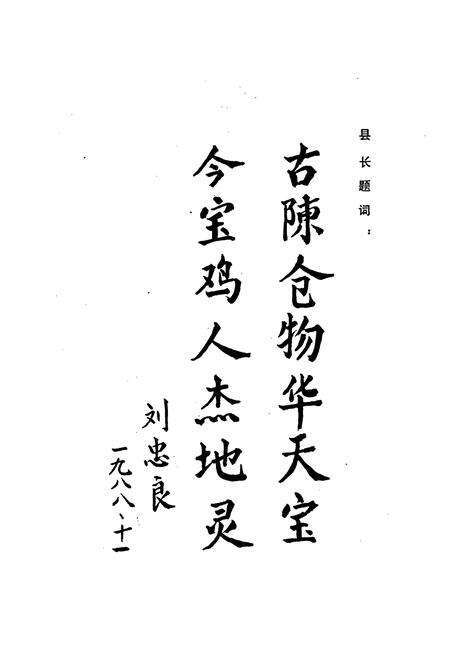 县长题词：
古陳仓物华天宝
今宝鸡人杰地灵
刘忠良
一九八八、十一